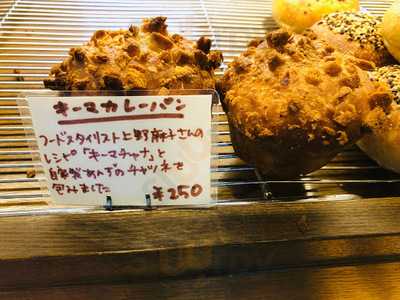 キーマカレーパン
フードスタイリスト上野麻子さんの
レシピ「キーマチャナ」と
自家製あんずのチャツネを
包みました ¥250